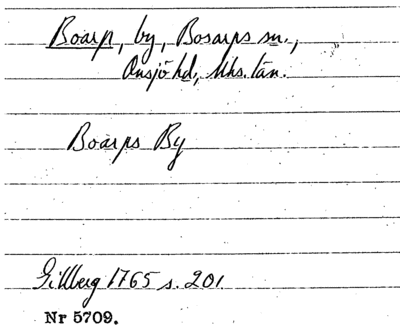 Boarp, by, Bosarps sn.,
Onsjö hd, Mhs. län.
Boarps By
Gillberg 1765 s. 201
Nr 5709.